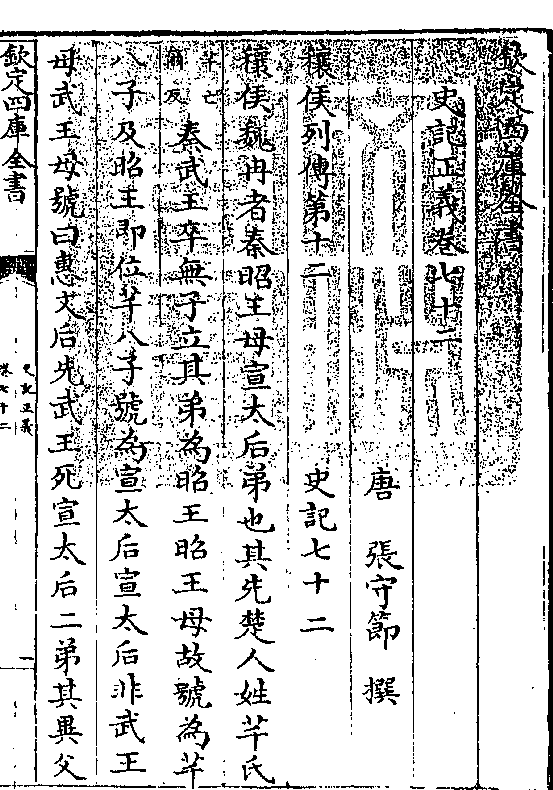 欽定四庫全書
史記正義卷七十二
唐 張守節 撰
穰侯列傳第十二 史記七十二
穰侯魏冉者秦昭王母宣太后弟也其先楚人姓芈氏
芈亡爾反 秦武王卒無子立其弟為昭王昭王母故號為芈
八子及昭王即位芈八子號為宣太后宣太后非武王
母武王母號曰惠文后先武王死宣太后二弟其異父
欽定四庫全書
史記正義
卷七十二
一